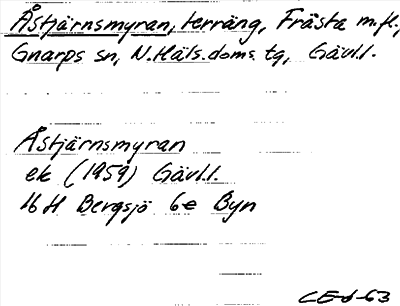 Åstjärnsmyran, terräng, Frästa m.fl.,
Gnarps sn, N.Häls.doms.tg, Gävl.l.
Åstjärnsmyran
ek (1959) Gävl.l.
16H Bergsjö 6e Byn
CE-d-63